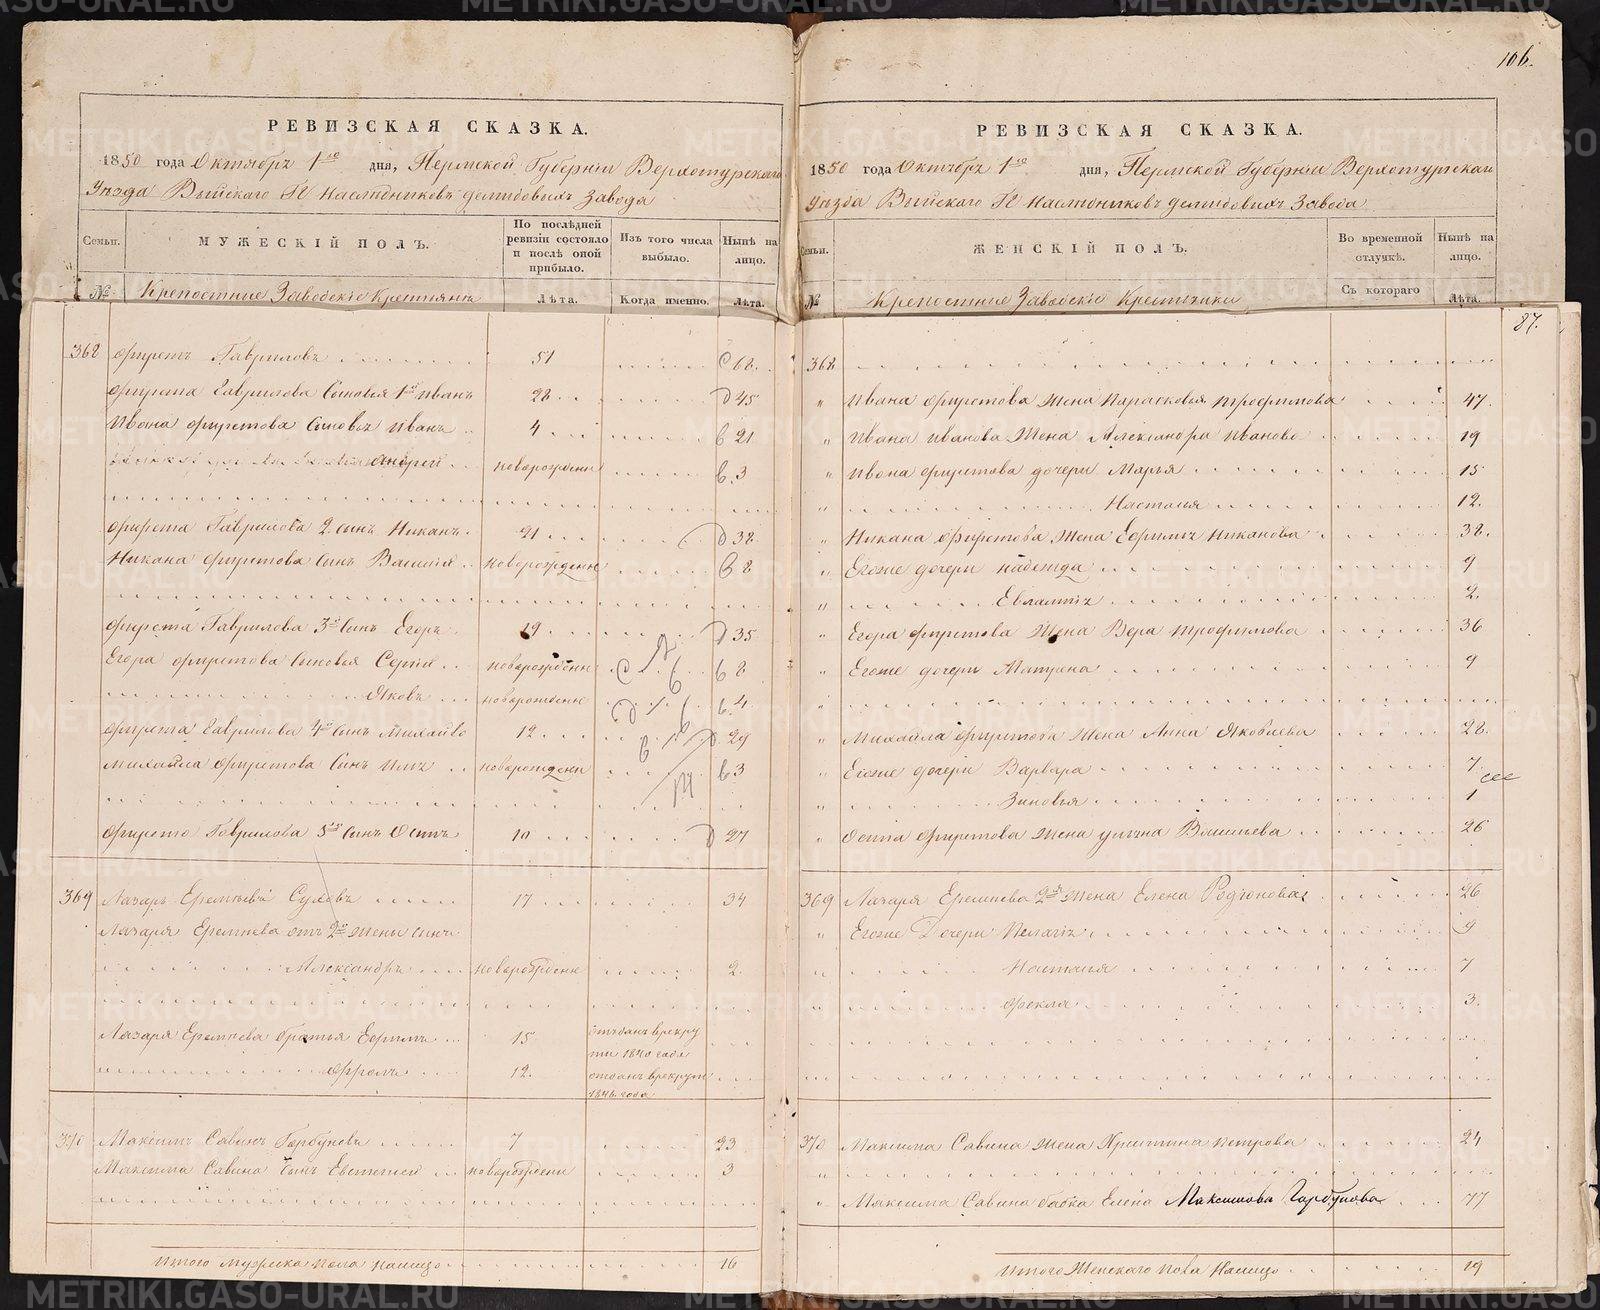 106.
РЕВИЗСКАЯ СКАЗКА.
1850 года Октября 1го дня, Пермской Губернiи Верхотурскаго
Уѣзда Выйскаго Гг Наслѣдниковъ Демидовыхъ Завода
Семьи. МУЖЕСКIЙ ПОЛЪ. По послѣдней ревизiи состояло и послѣ оной прибыло. Изъ того числа выбыло. Нынѣ на лицо.
№ Крепостные Заводскiе Крестьяне Лѣта. Когда именно. Лѣта.
368 Гаврилова 51 68.
Гаврилова Сыновья 1й Иванъ 28 45
Ивана Сыновья Иванъ 4 21
Андрей новорожденн 3
Гаврилова 2 сынъ 21 38
сынъ Василiй новорожденн 8
Гаврилова 3й Сынъ Егоръ 19 35
Егора Сыновья Сергiй новорожденн 8
Яковъ новорожденн 4
Гаврилова 4й Сынъ Михайло 12 29
Михайла Сынъ новорожденн 3
Гаврилова 5й Сынъ Осипъ 10 27
369 Лазарь Еремѣевъ Суховъ 17 34
Лазаря Еремѣева отъ 2й жены сынъ
Александръ новорожденн 2
Лазаря Еремѣева братья Ефимъ 15 отъданъ врекру
ты 1840 года
Фролъ 12. отданъ врекруты
1846 года
370 Максимъ Савинъ Горбуновъ 7 23
Максима Савина Сынъ Евстигней новорожденн 3
Итого Мужеска пола налицо 16
РЕВИЗСКАЯ СКАЗКА.
1850 года Октября 1го дня, Пермской Губернiи Верхотурскаго
Уѣзда Выйскаго Гг Наслѣдниковъ Демидовыхъ Завода
Семьи. ЖЕНСКIЙ ПОЛЪ. Во временной отлучкѣ. Нынѣ на лицо.
№ Крепостные Заводскiе Крестьянки Съ котораго Лѣта.
87.
368
" Ивана Жена Парасковья Трофимова 47.
" Ивана Иванова Жена Александра Иванова 19
" Ивана дочери Марья 15
" Настасья 12.
" Жена 38.
" Егоже дочери Надежда 9
" Евлампiя 2.
" Егора Жена Вера Трофимова 36
" Егоже дочери Матрена 9
"
" Михайла Жена Анна Яковлева 28.
" Егоже дочери Варвара 7.
" Зиновья 1
" Осипа Жена Васильева 26
369 Лазаря Еремѣева 2я Жена Елена Родiонова 26
" Егоже Дочери Пелагiя 9
" Настасья 7
" Фекла 3.
370 Максима Савина Жена Христина Петрова 24
"
" Максима Савина бабка Елена Максимова Горбунова 77
Итого Женскаго пола Налицо 19
METRIKI.GASO-URAL.RU